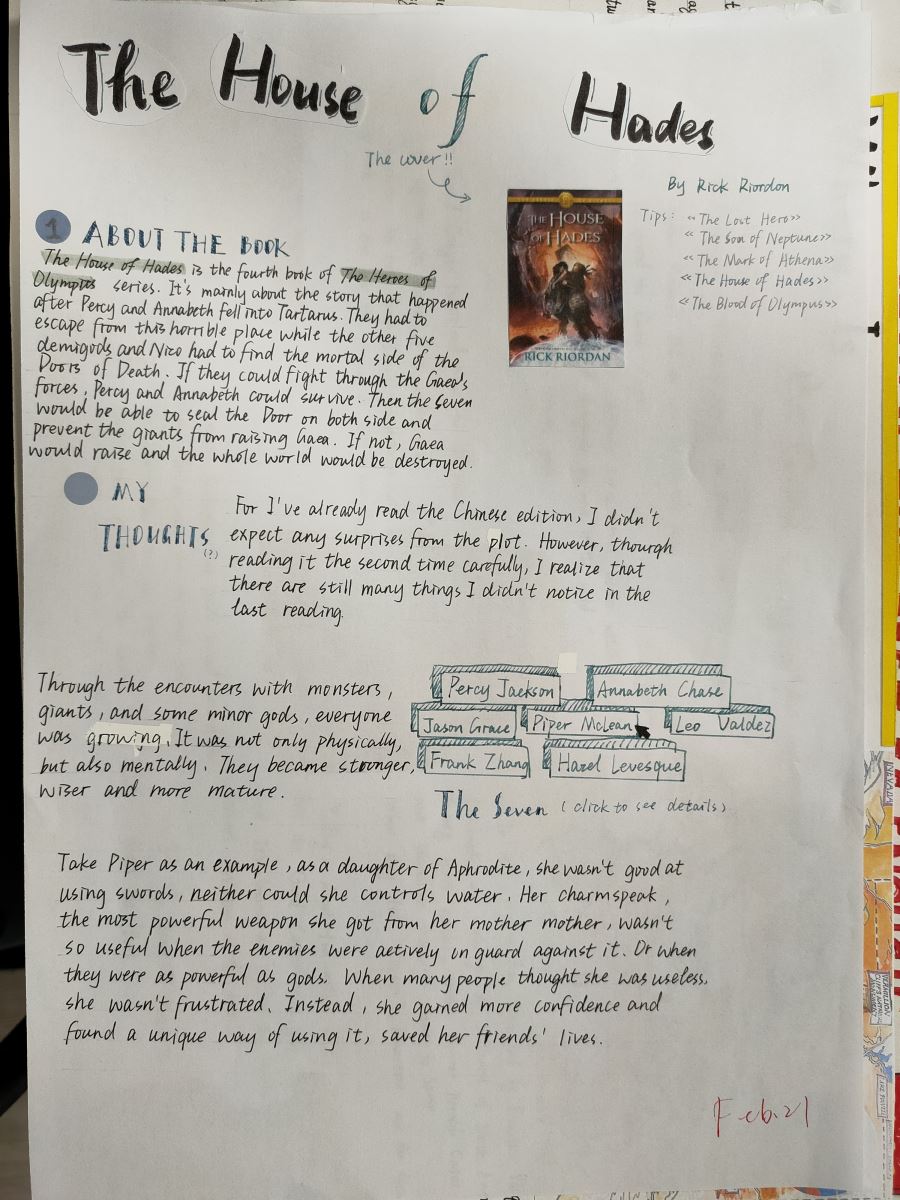 The House of Hades
The cover!!
By Rick Riordon
Tips: 《The Lost Hero》
《The Son of Neptune》
《The Mark of Athena》
《The House of Hades》
《The Blood of Olympus》
THE HOUSE
OF HADES
RICK RIORDAN
1 ABOUT THE BOOK
The House of Hades is the fourth book of The Heroes of
Olympus series. It's mainly about the story that happened
after Percy and Annabeth fell into Tartarus. They had to
escape from this horrible place while the other five
demigods and Nico had to find the mortal side of the
Doors of Death. If they could fight through the Gaea's
forces, Percy and Annabeth could survive. Then the Seven
would be able to seal the Door on both side and
prevent the giants from raising Gaea. If not, Gaea
would raise and the whole world would be destroyed.
MY
THOUGHTS
(?)
For I've already read the Chinese edition, I didn't
expect any surprises from the plot. However, thourgh
reading it the second time carefully, I realize that
there are still many things I didn't notice in the
last reading.
Through the encounters with monsters,
giants, and some minor gods, everyone
was growing. It was not only physically,
but also mentally. They became stronger,
wiser and more mature.
Percy Jackson Annabeth Chase
Jason Grace Piper McLean Leo Valdez
Frank Zhang Hazel Levesque
The Seven (click to see details)
Take Piper as an example, as a daughter of Aphrodite, she wasn't good at
using swords, neither could she controls water. Her charmspeak,
the most powerful weapon she got from her mother mother, wasn't
so useful when the enemies were actively on guard against it. Or when
they were as powerful as gods. When many people thought she was useless,
she wasn't frustrated. Instead, she gained more confidence and
found a unique way of using it, saved her friends' lives.
Feb.21
NEVADA